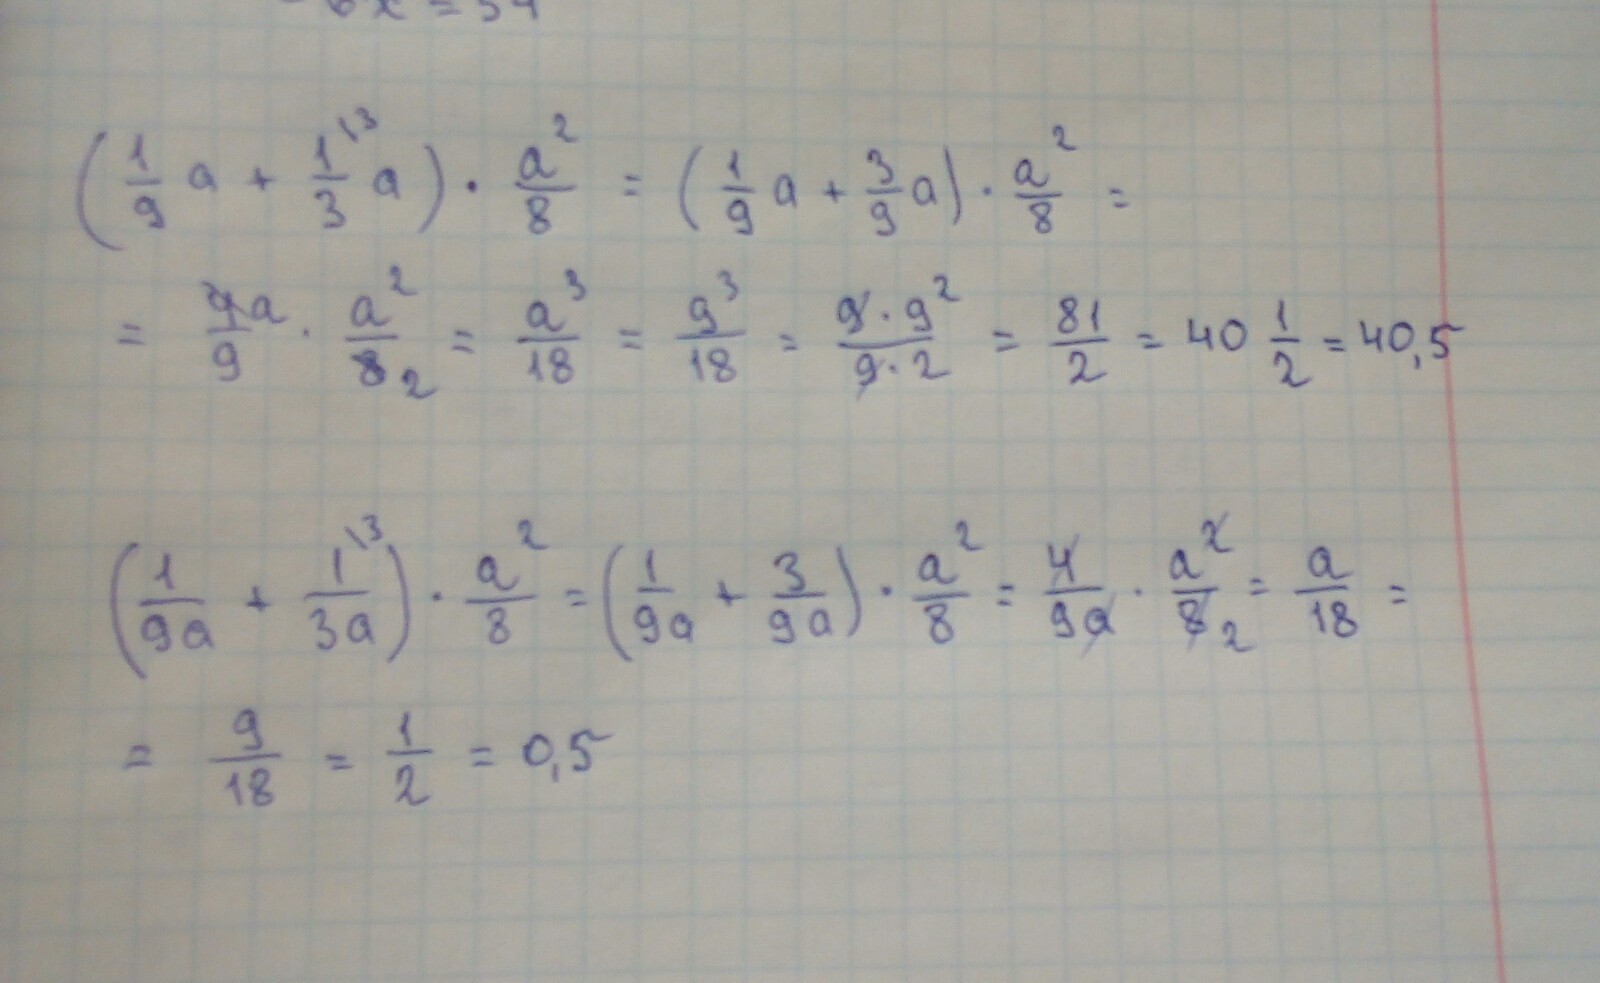 (1/9 a + 1/3\3 a) · a²/8 = (1/9 a + 3/9 a) · a²/8 =
= 4a/9 · a²/8 2 = a³/18 = 9³/18 = 9·9²/9·2 = 81/2 = 40 1/2 = 40,5
(1/9a + 1\3/3a) · a²/8 = (1/9a + 3/9a) · a²/8 = 4/9a · a²/8 2 = a/18 =
= 9/18 = 1/2 = 0,5